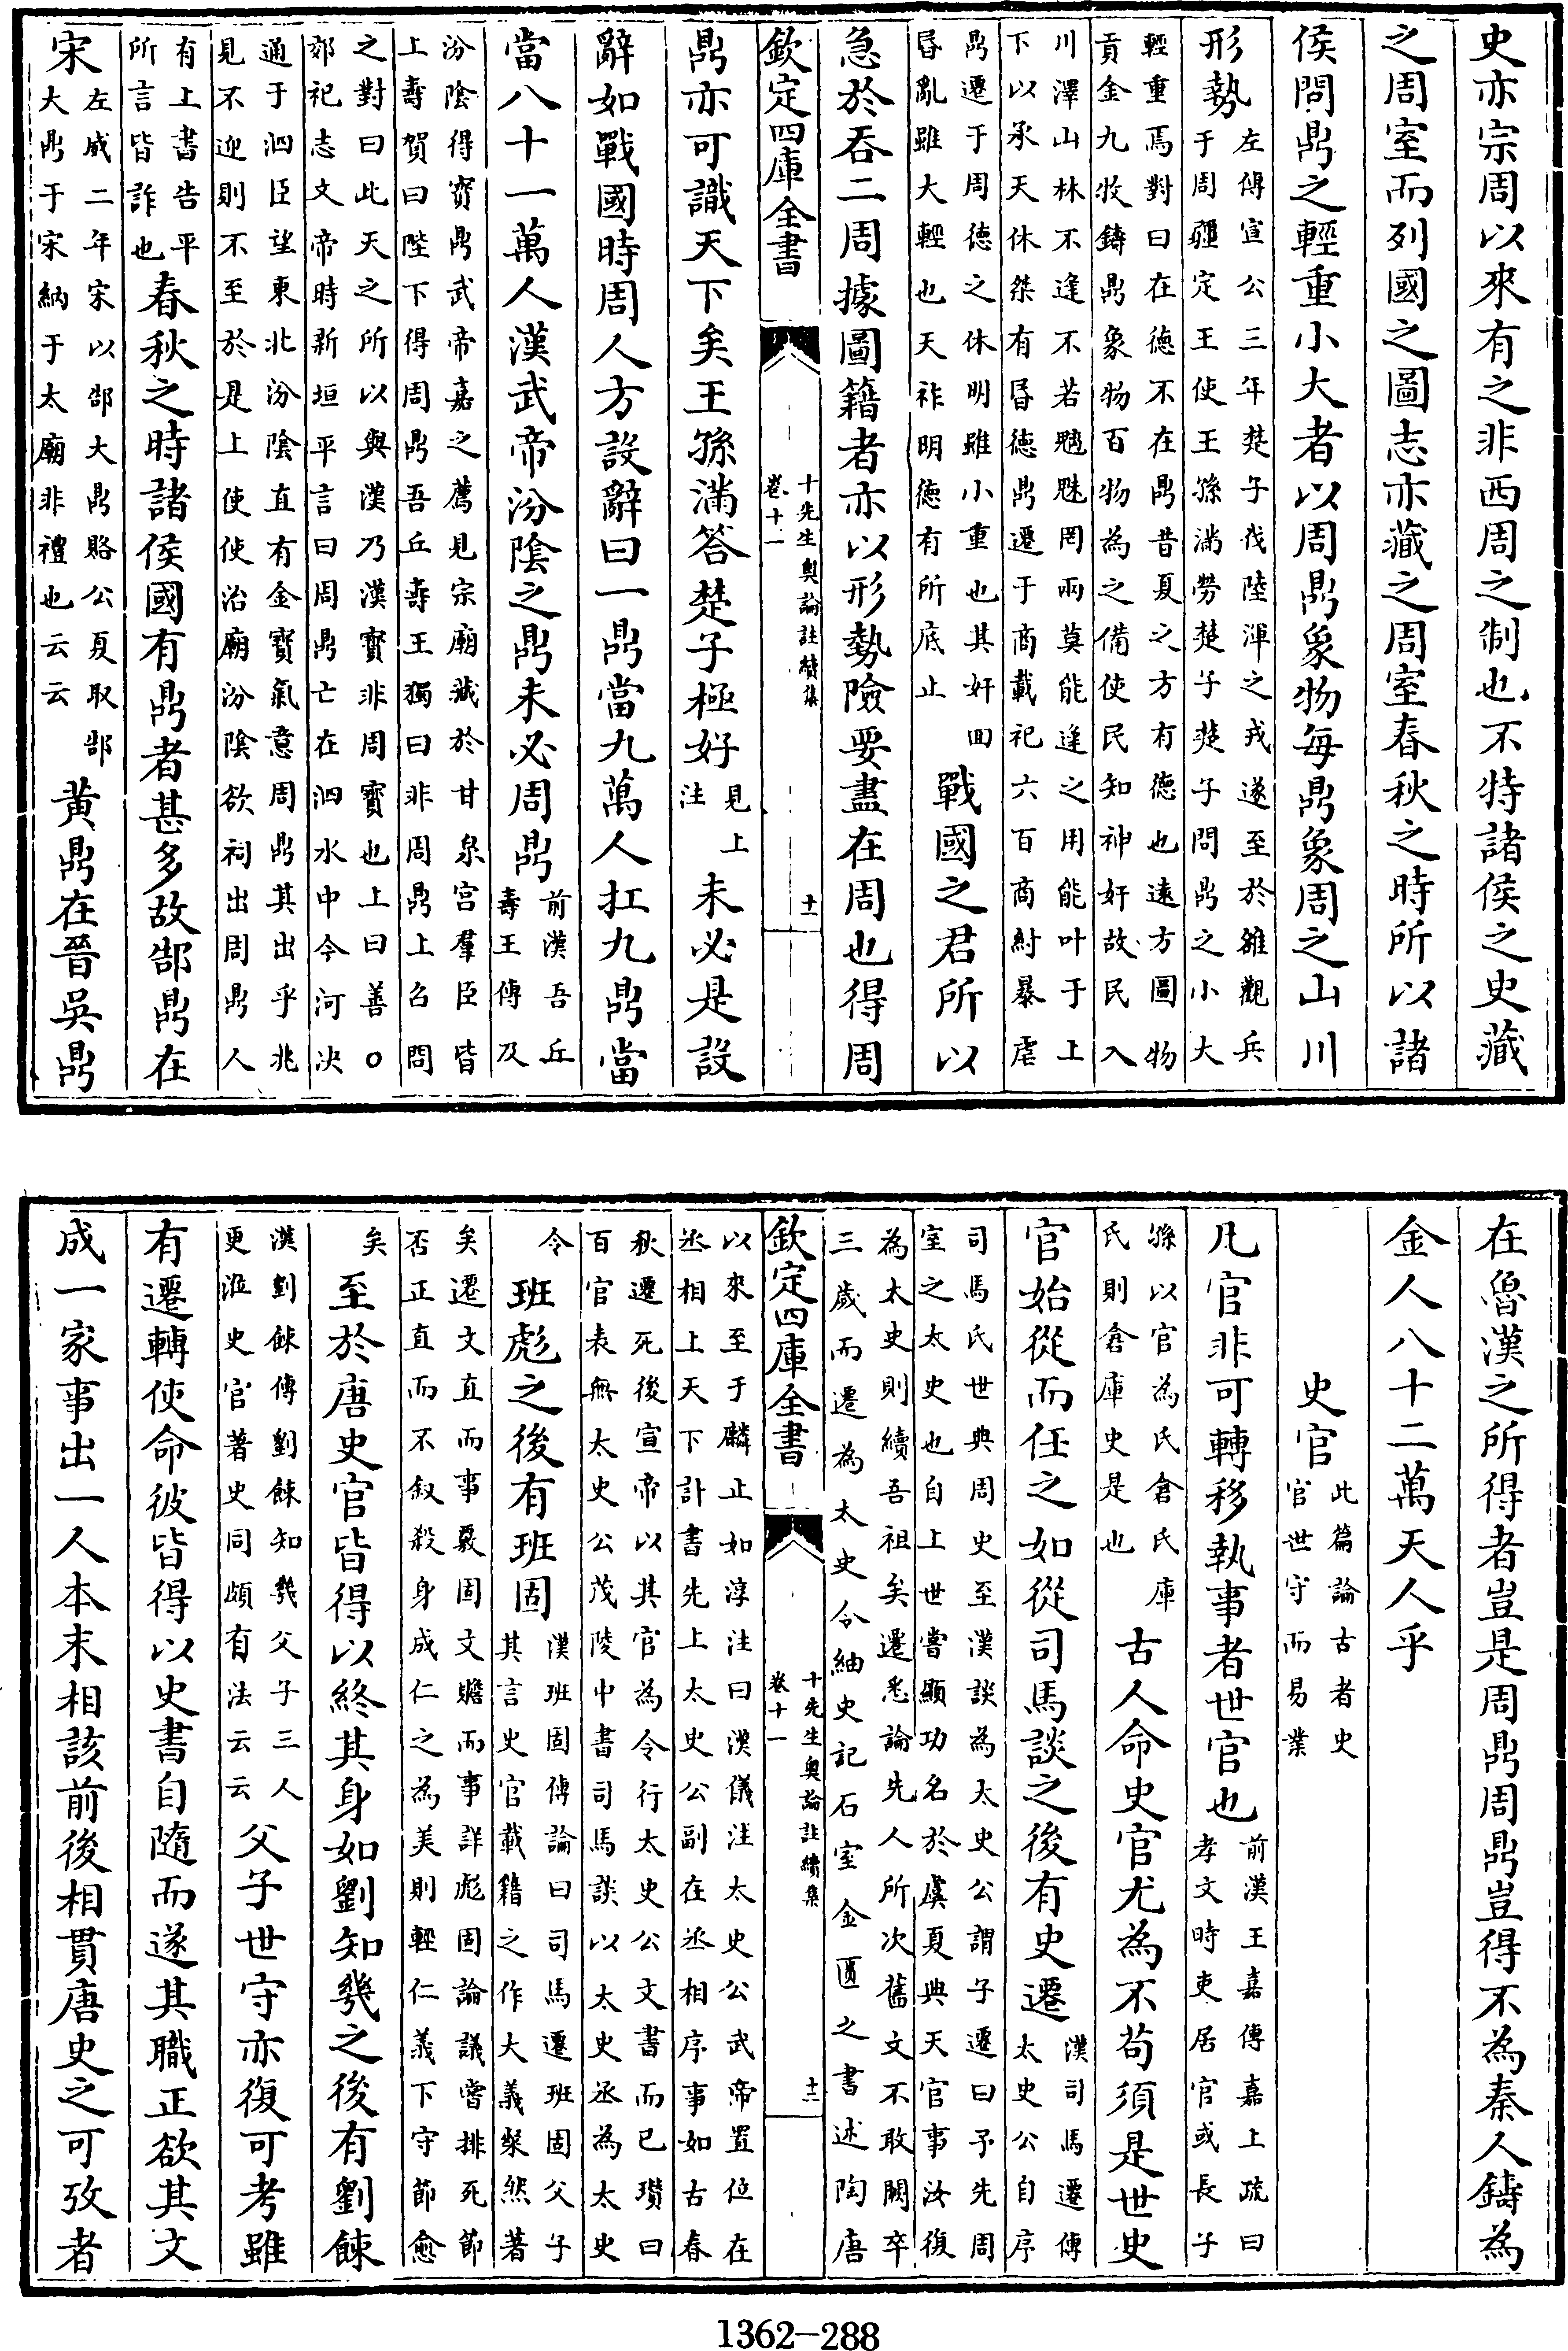 史亦宗周以來有之非西周之制也不特諸侯之史藏
之周室而列國之圖志亦藏之周室春秋之時所以諸
侯問鼎之輕重小大者以周鼎象物每鼎象周之山川
形勢左傳宣公三年楚子伐陸渾之戎遂至於雒觀兵
于周疆定王使王孫滿勞楚子楚子問鼎之小大
輕重焉對曰在德不在鼎昔夏之方有德也遠方圖物
貢金九牧鑄鼎象物百物為之備使民知神奸故民入
川澤山林不逢不若魑魅罔兩莫能逢之用能叶于上
下以承天休桀有昏德鼎遷于商載祀六百商紂暴虐
鼎遷于周德之休明雖小重也其奸回
昏亂雖大輕也天祚明德有所底止
戰國之君所以
急於吞二周據圖籍者亦以形勢險要盡在周也得周
欽定四庫全書
十先生奧論註續集
卷十一
十一
鼎亦可識天下矣王孫滿答楚子極好見上
注
未必是設
辭如戰國時周人方設辭曰一鼎當九萬人扛九鼎當
當八十一萬人漢武帝汾陰之鼎未必周鼎前漢吾丘
壽王傳及
汾陰得寳鼎武帝嘉之薦見宗廟藏於甘泉宫羣臣皆
上壽賀曰陛下得周鼎吾丘壽王獨曰非周鼎上召問
之對曰此天之所以與漢乃漢寳非周寳也上曰善○
郊祀志文帝時新垣平言曰周鼎亡在泗水中今河决
通于泗臣望東北汾陰直有金寳氣意周鼎其出乎兆
見不迎則不至於是上使使治廟汾陰欲祠出周鼎人
有上書告平
所言皆詐也
春秋之時諸侯國有鼎者甚多故郜鼎在
宋左威二年宋以郜大鼎賂公夏取郜
大鼎于宋納于太廟非禮也云云
黄鼎在晉吳鼎
在魯漢之所得者豈是周鼎周鼎豈得不為秦人鑄為
金人八十二萬天人乎
史官此篇論古者史
官世守而易業
凡官非可轉移執事者世官也前漢王嘉傳嘉上疏曰
孝文時吏居官或長子
孫以官為氏倉氏庫
氏則倉庫史是也
古人命史官尤為不苟須是世史
官始從而任之如從司馬談之後有史遷漢司馬遷傳
太史公自序
司馬氏世典周史至漢談為太史公謂子遷曰予先周
室之太史也自上世嘗顯功名於虞夏典天官事汝復
為太史則續吾祖矣遷悉論先人所次舊文不敢闕卒
三歲而遷為太史令紬史記石室金匱之書述陶唐
欽定四庫全書
十先生奧論註續集
卷十一
十二
以來至于麟止如淳注曰漢儀注太史公武帝置位在
丞相上天下計書先上太史公副在丞相序事如古春
秋遷死後宣帝以其官為令行太史公文書而已瓚曰
百官表無太史公茂陵中書司馬談以太史丞為太史
令
班彪之後有班固漢班固傳論曰司馬遷班固父子
其言史官載籍之作大義粲然著
矣遷文直而事覈固文贍而事詳彪固論議嘗排死節
否正直而不叙殺身成仁之為美則輕仁義下守節愈
矣
至於唐史官皆得以終其身如劉知幾之後有劉餗
漢劉餗傳劉餗知幾父子三人
更涖史官著史同頗有法云云
父子世守亦復可考雖
有遷轉使命彼皆得以史書自隨而遂其職正欲其文
成一家事出一人本末相該前後相貫唐史之可攷者
1362-288